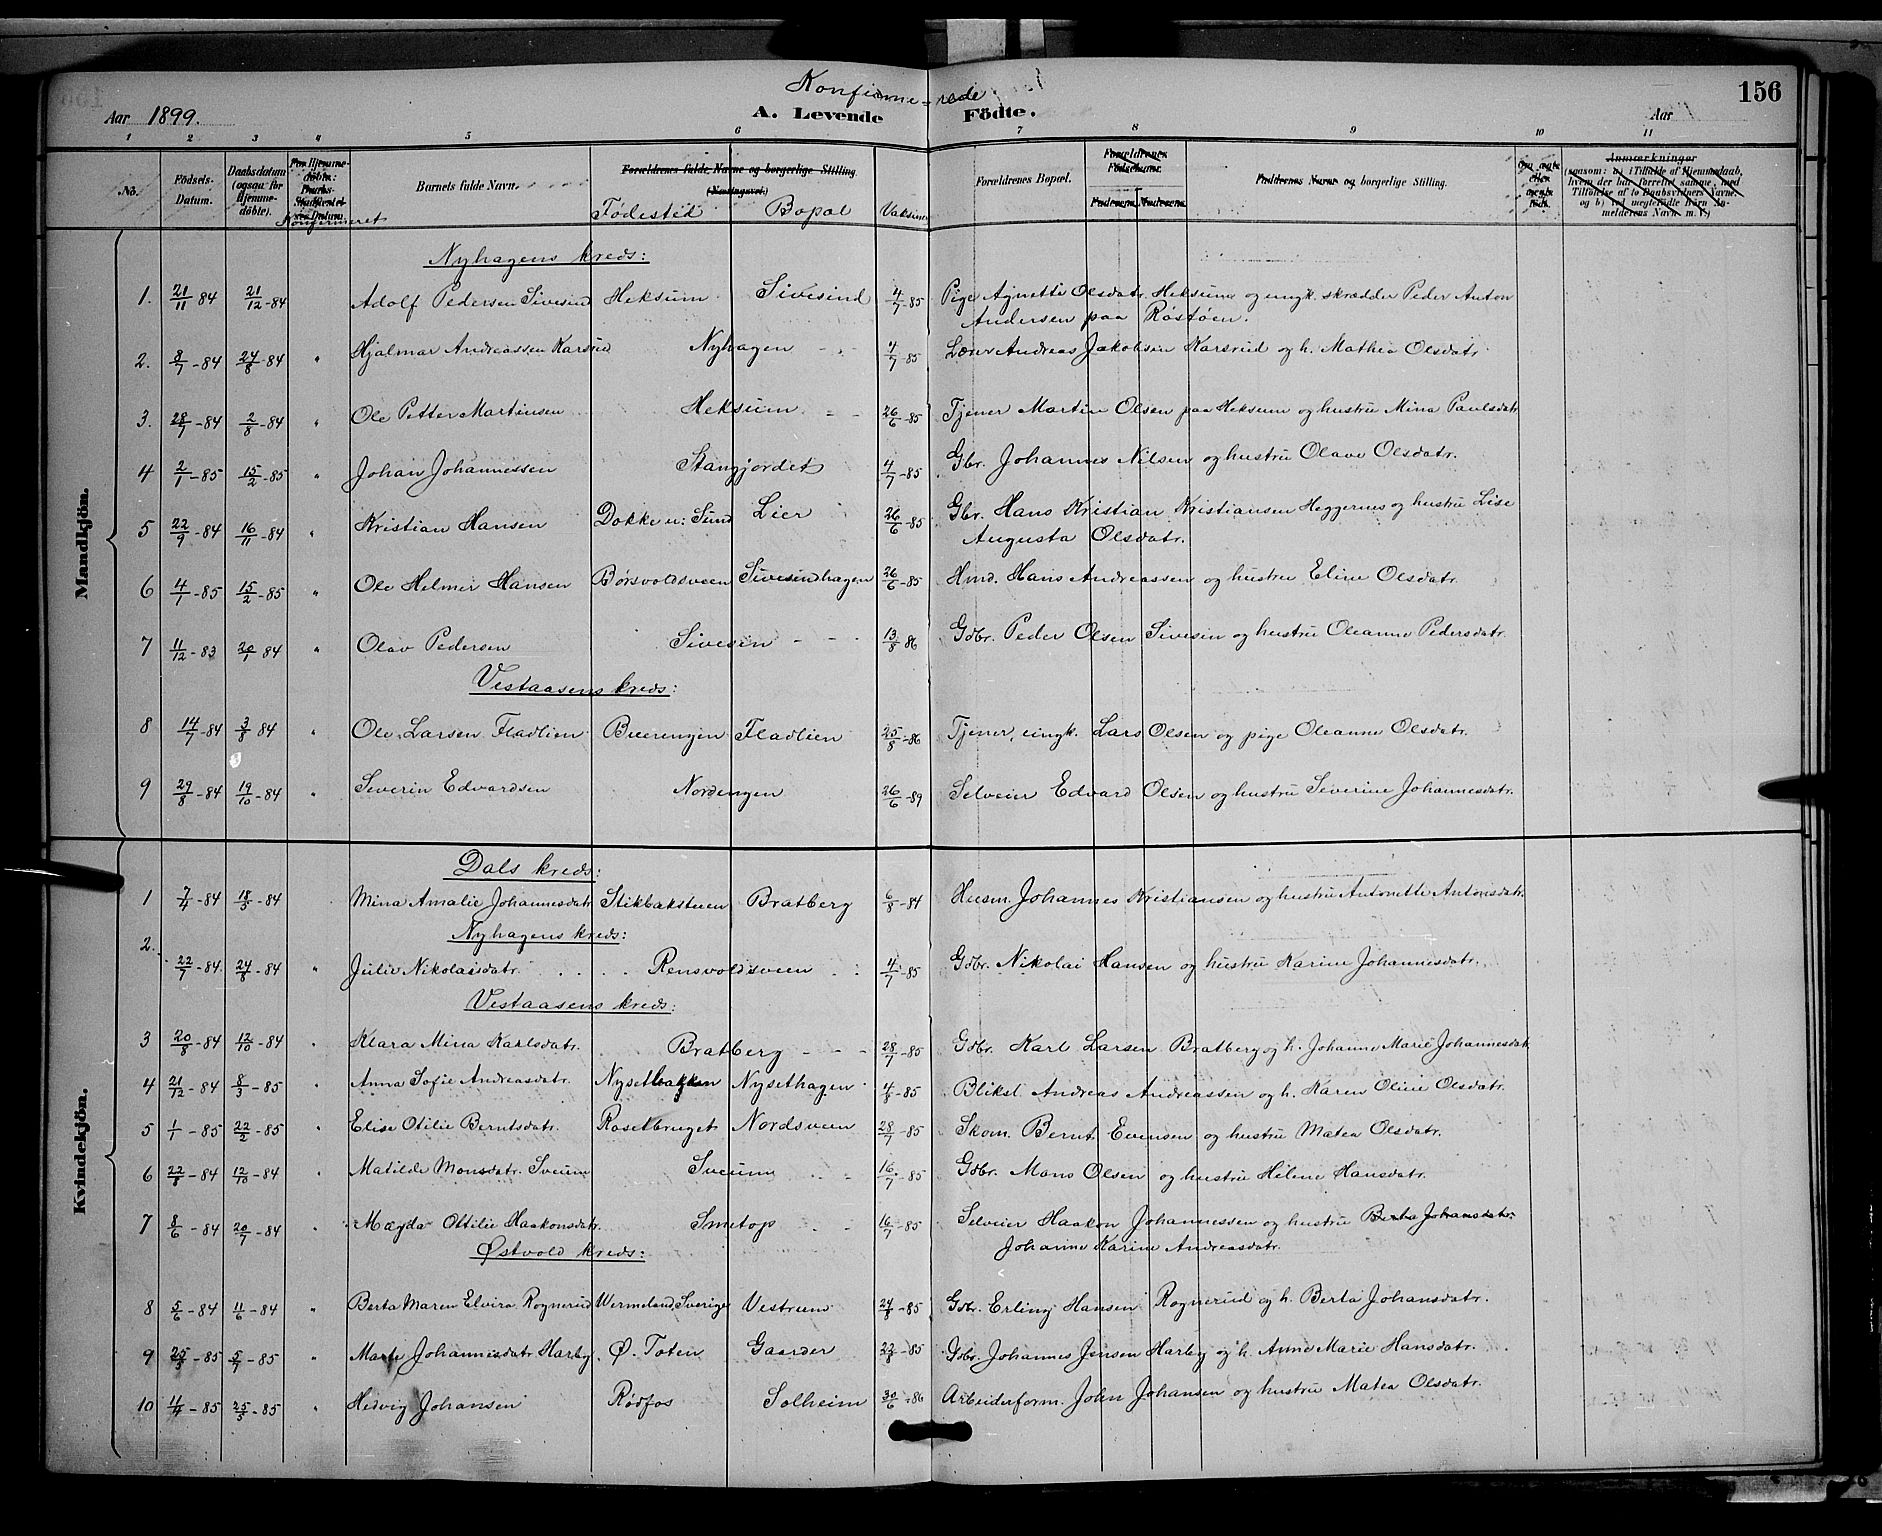 156
Konfirme-rede
Aar 1899.
A. Levende Födte.
Aar
1 2 3 4 5 6 7 8 9 10 11
No. Födsels-Datum. Daabsdatum (ogsaa for Hjemmedöbte). Konfirmeret Barnets fulde Navn. Forældrenes fulde Navne og borgerlige Stilling. Fødested Bopæl Vaksine Forældrenes Bopæl. Forældrenes Födselsaar. Faderens. Moderens. Faddrenes Navne og borgerlige Stilling. Anmærkninger
Mandkjön.
Nyhagens kreds:
1. 21/11 84 21/12-84 Adolf Pedersen Sivesind Heksum Sivesind 4/7-85 Pige Agnette Olsdatr. Heksum og ungk. skrædder Peder Anton
Andersen paa Røstøen.
2. 8/7-84 24/8-84 " Hjalmar Andreassen Karsrud Nyhagen 4/7-85 Lærer Andreas Jakobsen Karsrud og h. Mathea Olsdatr.
3. 28/7-84 2/8-84 " Ole Petter Martinsen Heksum 26/6-85 Tjener Martin Olsen paa Heksum og hustru Mina Paulsdatr.
4 2/1-85 15/2-85 " Johan Johannessen Stangjordet 4/7-85 Gbr. Johannes Nilsen og hustru Olave Olsdatr.
5 22/9-84 16/11-84 " Kristian Hansen Dokke u: Sund Lier 26/6-85 Gbr. Hans Kristian Kristiansen Heggernes og hustru Lise
Augusta Olsdatr.
6 4/1-85 15/2-85 " Ole Helmer Hansen Børsvoldsveen Sivesindhagen 26/6-85 Hmd. Hans Andreassen og hustru Eline Olsdatr.
7 11/12-83 20/1 84 " Olav Pedersen Sivesin 13/8 86 Gdbr. Peder Olsen Sivesin og hustru Oleanne Pedersdatr.
Vestaasens kreds:
8 14/7-84 3/8 84 " Ole Larsen Fladlien Buerengen Fladlien 25/8-86 Tjener, ungk. Lars Olsen og pige Oleanne Olsdatr.
9 29/8-84 19/10-84 " Severin Edvardsen Nordengen 26/6-89 Selveier Edvard Olsen og hustru Severine Johannesdatr.
Kvindekjön.
Dals kreds:
1 7/4-84 18/5-84 Mina Amalie Johannesdatr. Stikbakstuen Bratberg 6/8-84 Husm. Johannes Kristiansen og hustru Antonette Antonsdatr.
Nyhagens kreds:
2. 22/7-84. 24/8-84 " Julie Nikolaisdatr. Rensvoldsveen 4/7-85 Gdbr. Nikolai Hansen og hustru Karine Johannesdatr.
Vestaasens kreds:
3 20/8-84 12/10-84 " Klara Mina Karlsdatr. Bratberg 28/7-85 Gdbr. Karl Larsen Bratberg og h. Johanne Marie Johannesdatr.
4 21/12-84 8/3-85 " Anna Sofie Andreasdatr. Nysetbakken Nysethagen 4/8-85 Bliksl. Andreas Andreassen og h. Karen Oline Olsdatr.
5 1/1-85 22/2-85 " Elise Otilie Berntsdatr. Rosetbruget Nordsveen 28/7-85 Skom. Bernt Evensen og hustru Matea Olsdatr.
6 22/8-84 12/10-84 " Matilde Monsdatr. Sveum Sveum 16/7-85 Gdbr. Mons Olsen og hustru Helene Hansdatr.
7 8/6-84 20/7-84 " Magda Ottilie Haakonsdatr. Smetop 16/7-85 Selveier Haakon Johannessen og hustru Berta Johansdatr.
Johanne Karine Andreasdatr.
Østvold kreds:
8 5/6-84 11/6-84 " Berta Maren Elvira Rognerud Wermeland, Sverige Vestrum 24/8-85 Gdbr. Erling Hansen Rognerud og h. Berta Johansdatr.
9 25/3-85 5/7-85 " Marte Johannesdatr. Harby Ø. Toten Gaarder 22/8-85 Gdbr. Johannes Jensen Harby og h. Anne Marie Hansdatr.
10 11/4-85 25/5-85 " Hedvig Johansen Rødfos Solheim 30/6-86 Arbeiderform. John Johansen og hustru Matea Olsdatr.